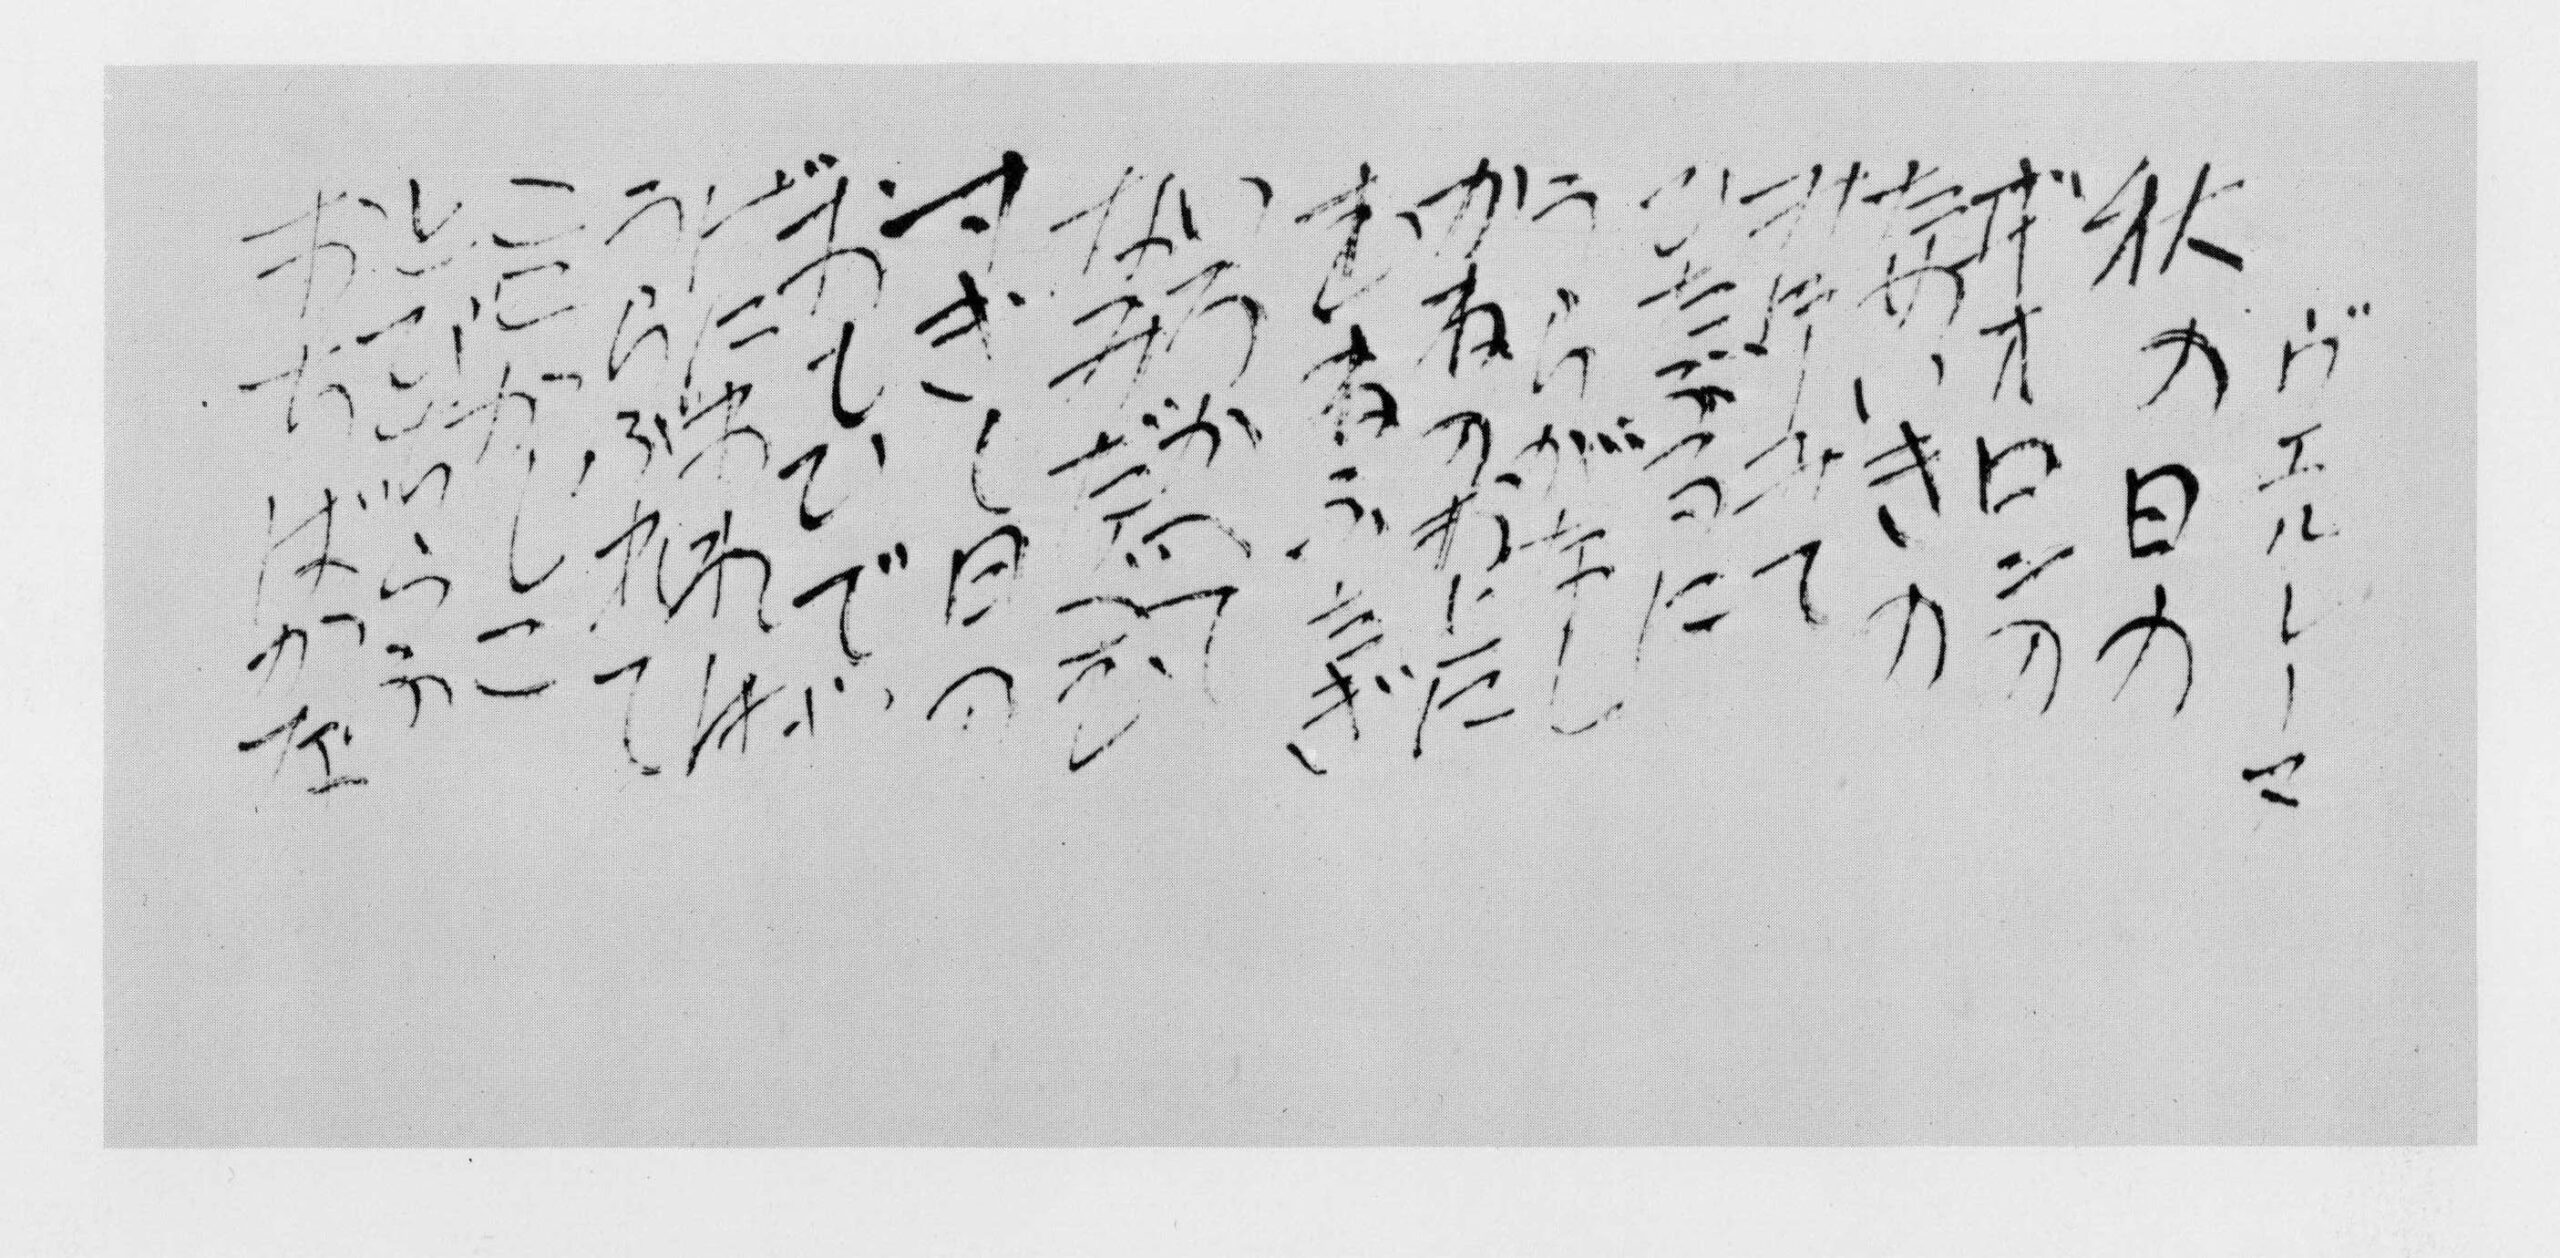 ヴエルレーヌ
秋の日の
ヸオロンの
ためいきの
みにしみて
ひたぶるに
うらがなし
かねのおとに
むねふたぎ
いろかへて
なみだぐむ
すぎし日の
おもひで
げにやわれは
うらぶれて
ここかしこ
とびちらふ
おちばかな